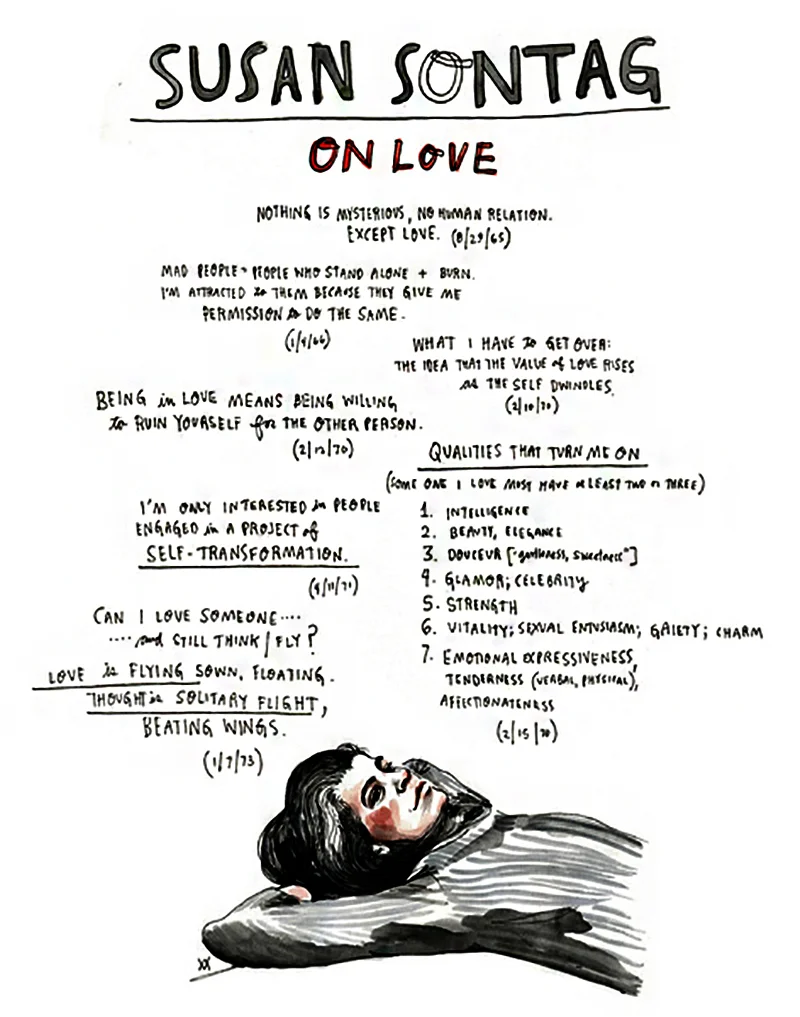 SUSAN SONTAG
ON LOVE
NOTHING IS MYSTERIOUS, NO HUMAN RELATION.
EXCEPT LOVE. (8/29/65)
MAD PEOPLE = PEOPLE WHO STAND ALONE + BURN.
I'M ATTRACTED to THEM BECAUSE THEY GIVE ME
PERMISSION to DO THE SAME.
WHAT I HAVE to GET OVER:
THE IDEA THAT THE VALUE of LOVE RISES
as THE SELF DWINDLES.
(2/10/70)
BEING in LOVE MEANS BEING WILLING
to RUIN YOURSELF for THE OTHER PERSON.
QUALITIES THAT TURN ME ON
(SOME ONE I LOVE MUST HAVE at LEAST TWO or THREE)
1. INTELLIGENCE
2. BEAUTY, ELEGANCE
3. DOUCEUR ["gentleness, sweetness"]
4. GLAMOR; CELEBRITY
5. STRENGTH
6. VITALITY; SEXUAL ENTUSIASM; GAIETY; CHARM
7. EMOTIONAL EXPRESSIVENESS,
TENDERNESS (VERBAL, PHYSICAL),
AFFECTIONATENESS
(2/15/70)
I'M ONLY INTERESTED in PEOPLE
ENGAGED in A PROJECT of
SELF-TRANSFORMATION.
CAN I LOVE SOMEONE....
.... and STILL THINK/FLY?
LOVE is FLYING SOWN, FLOATING.
THOUGHT is SOLITARY FLIGHT,
BEATING WINGS.
(1/7/73)